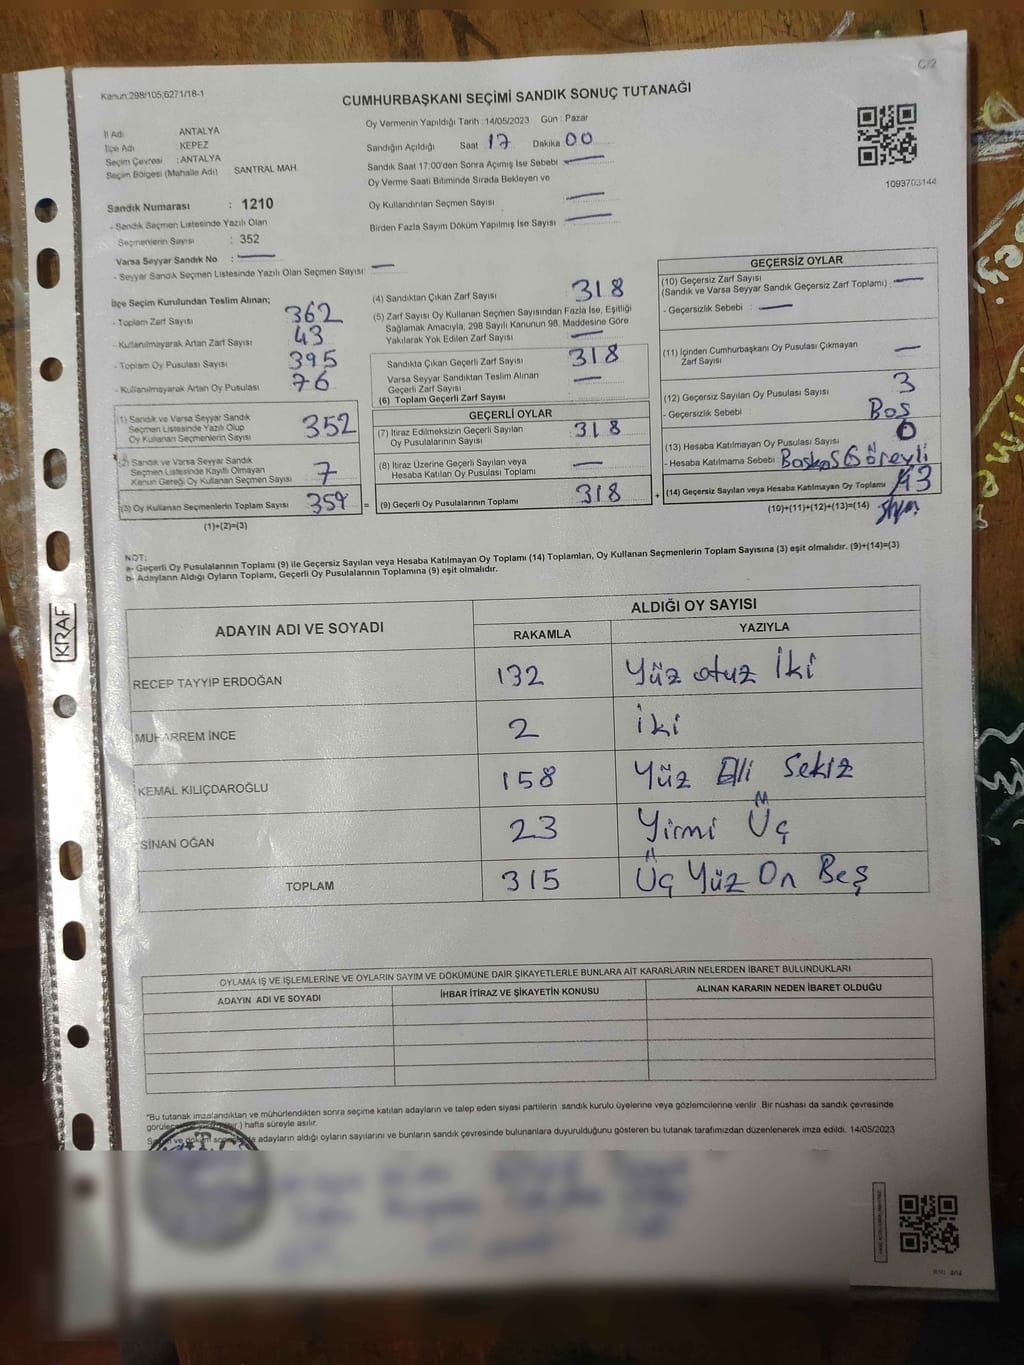 C/2
Kanun:298/105,6271/18-1
CUMHURBAŞKANI SEÇİMİ SANDIK SONUÇ TUTANAĞI
İl Adı : ANTALYA
İlçe Adı : KEPEZ
Seçim Çevresi : ANTALYA
Seçim Bölgesi (Mahalle Adı) SANTRAL MAH
Sandık Numarası : 1210
- Sandık Seçmen Listesinde Yazılı Olan
Seçmenlerin Sayısı : 352
Varsa Seyyar Sandık No : —
- Seyyar Sandık Seçmen Listesinde Yazılı Olan Seçmen Sayısı : —
Oy Vermenin Yapıldığı Tarih : 14/05/2023 Gün : Pazar
Sandığın Açıldığı Saat 17 Dakika 00
Sandık Saat 17:00'den Sonra Açımış İse Sebebi —
Oy Verme Saati Bitiminde Sırada Bekleyen ve
Oy Kullandırılan Seçmen Sayısı —
Birden Fazla Sayım Döküm Yapılmış İse Sayısı —
1093703144
İlçe Seçim Kurulundan Teslim Alınan;
- Toplam Zarf Sayısı 362
- Kullanılmayarak Artan Zarf Sayısı 43
- Toplam Oy Pusulası Sayısı 395
- Kullanılmayarak Artan Oy Pusulası 76
(1) Sandık ve Varsa Seyyar Sandık
Seçmen Listesinde Yazılı Olup
Oy Kullanan Seçmenlerin Sayısı 352
(2) Sandık ve Varsa Seyyar Sandık
Seçmen Listesinde Kayıtlı Olmayan
Kanun Gereği Oy Kullanan Seçmen Sayısı 7
(3) Oy Kullanan Seçmenlerin Toplam Sayısı 359 =
(1)+(2)=(3)
(4) Sandıktan Çıkan Zarf Sayısı 318
(5) Zarf Sayısı Oy Kullanan Seçmen Sayısından Fazla İse, Eşitliği
Sağlamak Amacıyla; 298 Sayılı Kanunun 98. Maddesine Göre
Yakılarak Yok Edilen Zarf Sayısı —
Sandıkta Çıkan Geçerli Zarf Sayısı 318
Varsa Seyyar Sandıktan Teslim Alınan
Geçerli Zarf Sayısı —
(6) Toplam Geçerli Zarf Sayısı
GEÇERLİ OYLAR
(7) İtiraz Edilmeksizin Geçerli Sayılan
Oy Pusulalarının Sayısı 318
(8) İtiraz Üzerine Geçerli Sayılan veya
Hesaba Katılan Oy Pusulası Toplamı —
(9) Geçerli Oy Pusulalarının Toplamı 318 +
GEÇERSİZ OYLAR
(10) Geçersiz Zarf Sayısı
(Sandık ve Varsa Seyyar Sandık Geçersiz Zarf Toplamı) : —
- Geçersizlik Sebebi : —
(11) İçinden Cumhurbaşkanı Oy Pusulası Çıkmayan
Zarf Sayısı —
(12) Geçersiz Sayılan Oy Pusulası Sayısı 3
- Geçersizlik Sebebi : Boş
(13) Hesaba Katılmayan Oy Pusulası Sayısı
- Hesaba Katılmama Sebebi :
(14) Geçersiz Sayılan veya Hesaba Katılmayan Oy Toplamı
(10)+(11)+(12)+(13)=(14)
NOT:
a- Geçerli Oy Pusulalarının Toplamı (9) ile Geçersiz Sayılan veya Hesaba Katılmayan Oy Toplamı (14) Toplamları, Oy Kullanan Seçmenlerin Toplam Sayısına (3) eşit olmalıdır. (9)+(14)=(3)
b- Adayların Aldığı Oyların Toplamı, Geçerli Oy Pusulalarının Toplamına (9) eşit olmalıdır.
ADAYIN ADI VE SOYADI ALDIĞI OY SAYISI
RAKAMLA YAZIYLA
RECEP TAYYİP ERDOĞAN 132 Yüz otuz İki
MUHARREM İNCE 2 İki
KEMAL KILIÇDAROĞLU 158 Yüz Elli Sekiz
SİNAN OĞAN 23 Yirmi Üç
TOPLAM 315 Üç Yüz On Beş
OYLAMA İŞ VE İŞLEMLERİNE VE OYLARIN SAYIM VE DÖKÜMÜNE DAİR ŞİKAYETLERLE BUNLARA AİT KARARLARIN NELERDEN İBARET BULUNDUKLARI
ADAYIN ADI VE SOYADI İHBAR İTİRAZ VE ŞİKAYETİN KONUSU ALINAN KARARIN NEDEN İBARET OLDUĞU
*Bu tutanak imzalandıktan ve mühürlendikten sonra seçime katılan adayların ve talep eden siyasi partilerin sandık kurulu üyelerine veya gözlemcilerine verilir. Bir nüshası da sandık çevresinde
) hafta süreyle asılır.
adayların aldığı oyların sayılarını ve bunların sandık çevresinde bulunanlara duyurulduğunu gösteren bu tutanak tarafımızdan düzenlenerek imza edildi. 14/05/2023
KRAF